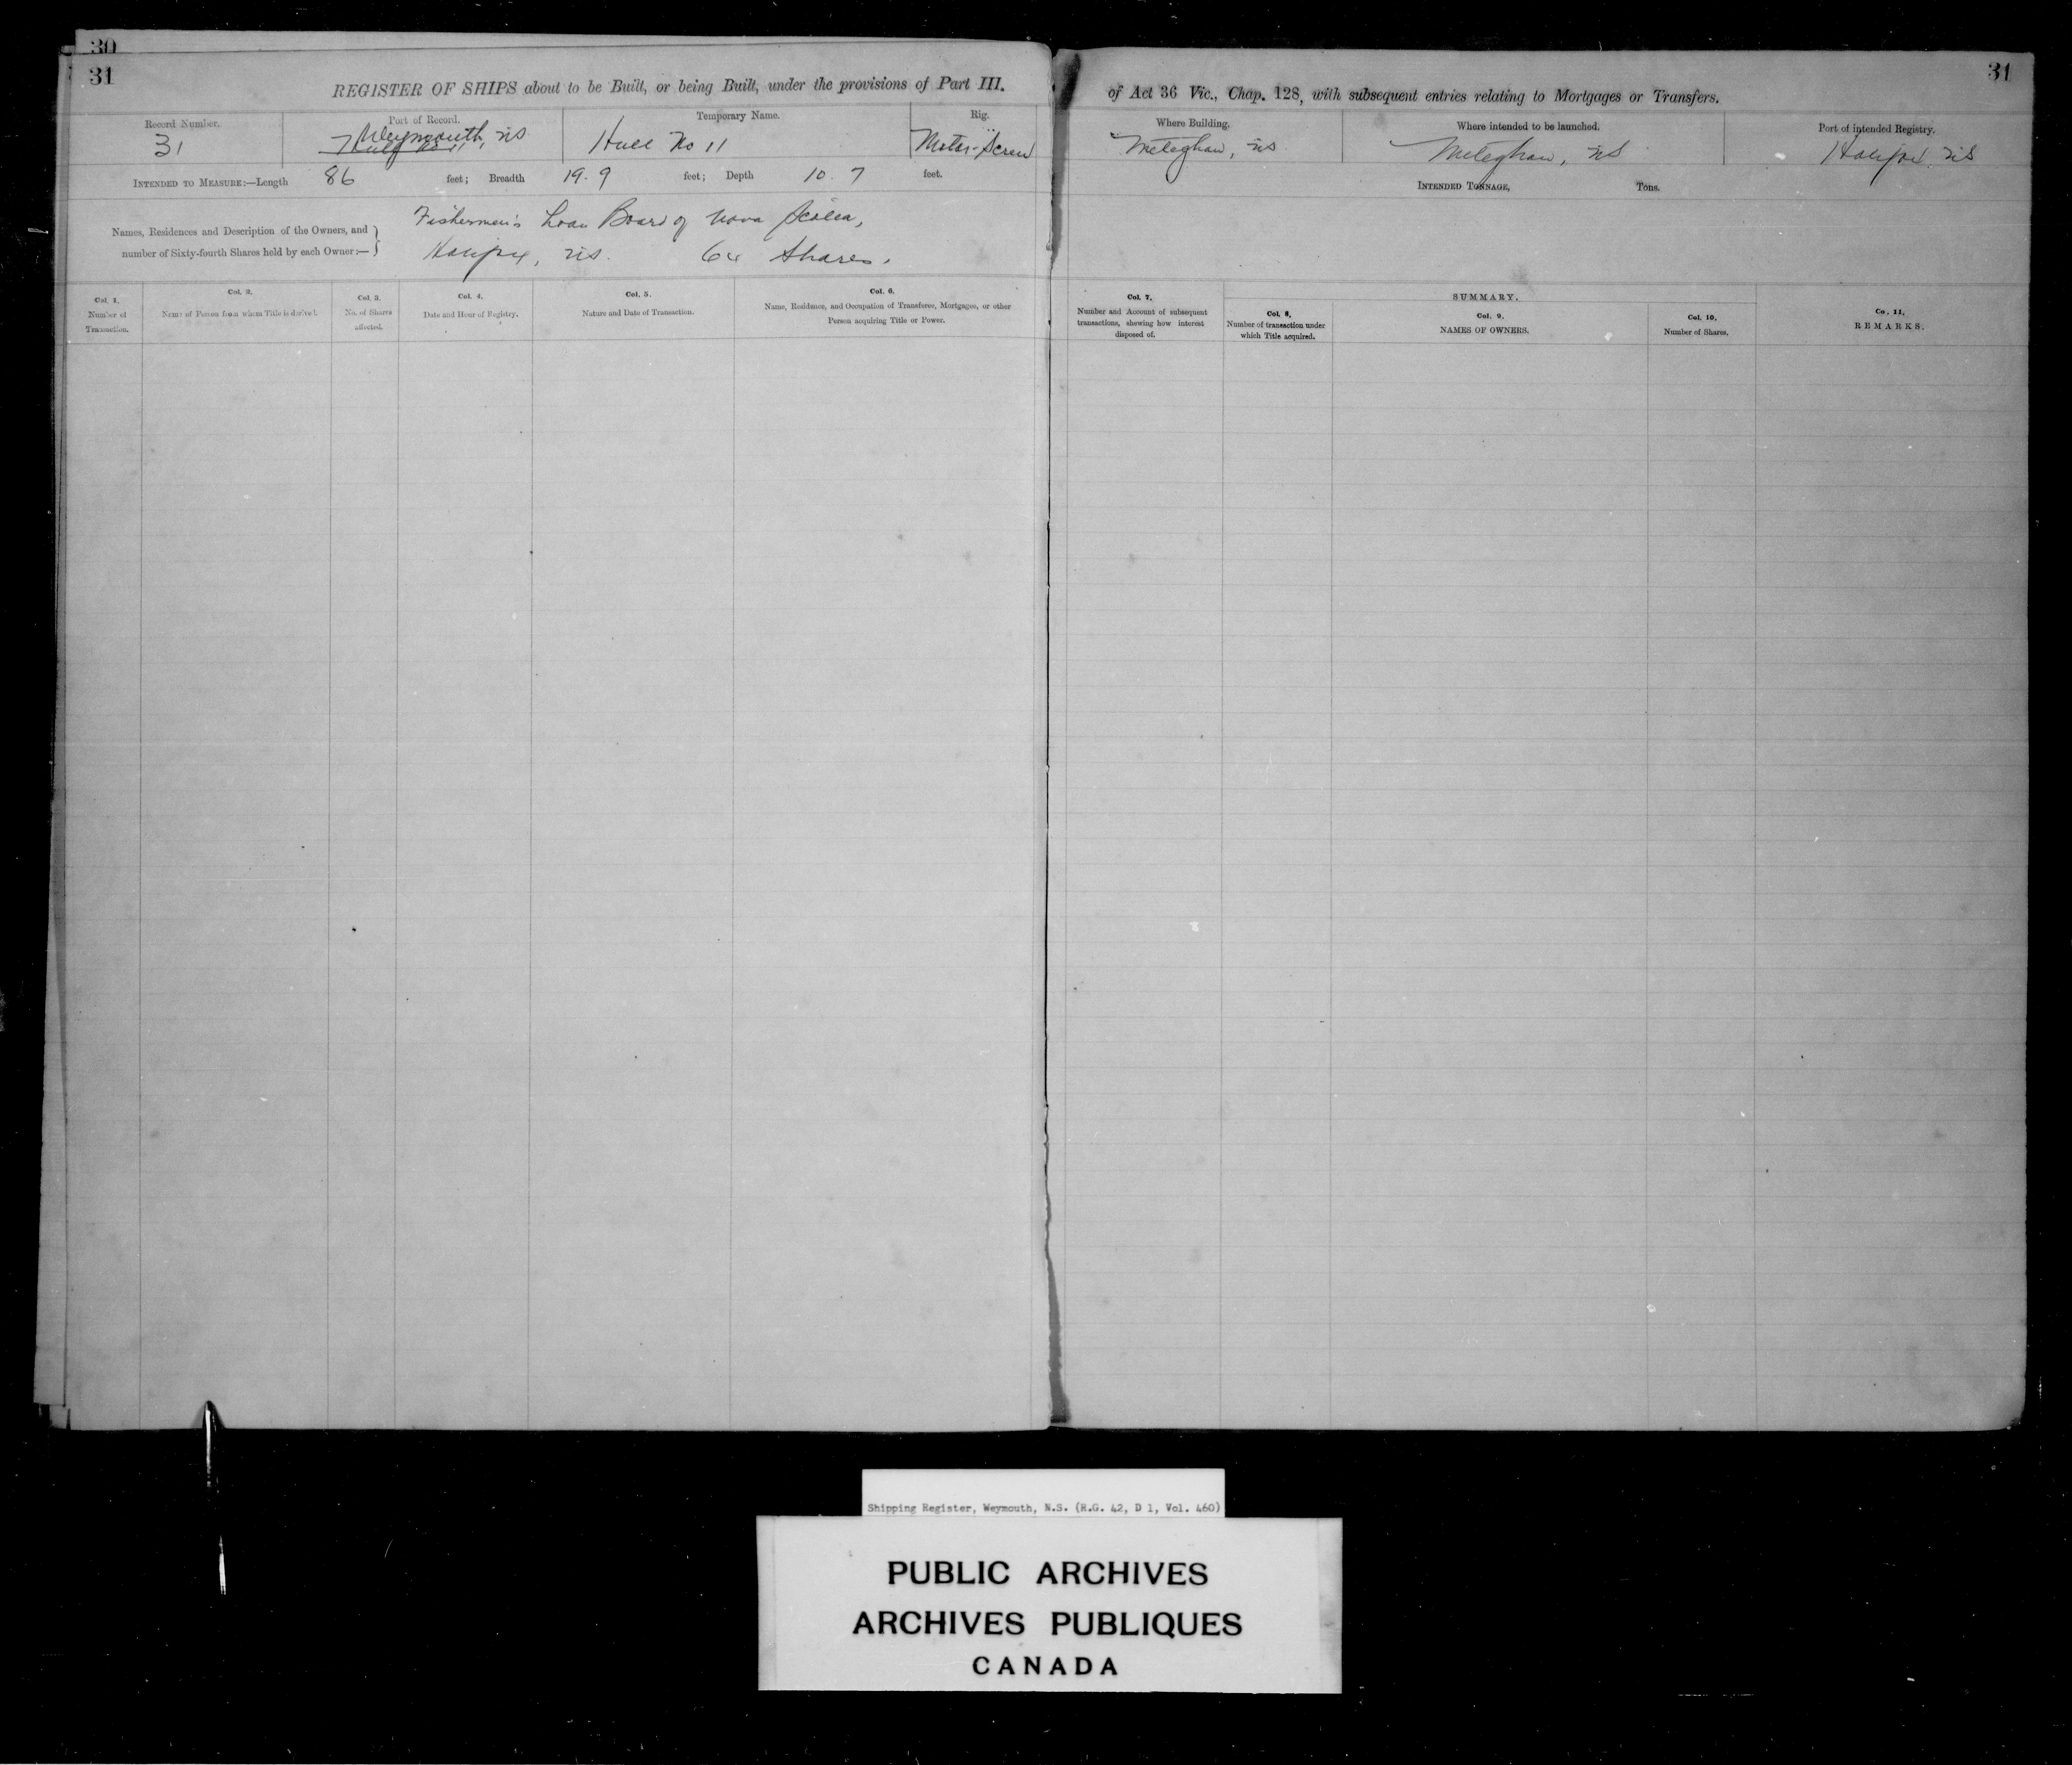 30
31
REGISTER OF SHIPS about to be Built, or being Built, under the provisions of Part III.
Record Number.
31
Port of Record.
Weymouth, NS
Hull No 11
Temporary Name.
Hull No 11
Rig.
Motor-Screw
INTENDED TO MEASURE:—Length 86 feet; Breadth 19.9 feet; Depth 10.7 feet.
Names, Residences and Description of the Owners, and
number of Sixty-fourth Shares held by each Owner:—
Fishermen's Loan Board of Nova Scotia,
Halifax, NS. 64 Shares.
Col. 1.
Number of
Transaction.
Col. 2.
Name of Person from whom Title is derived.
Col. 3.
No. of Shares
affected.
Col. 4.
Date and Hour of Registry.
Col. 5.
Nature and Date of Transaction.
Col. 6.
Name, Residence, and Occupation of Transferee, Mortgagee, or other
Person acquiring Title or Power.
31
of Act 36 Vic., Chap. 128, with subsequent entries relating to Mortgages or Transfers.
Where Building.
Meteghan, NS
Where intended to be launched.
Meteghan, NS
Port of intended Registry.
Halifax, NS
INTENDED TONNAGE, Tons.
Col. 7.
Number and Account of subsequent
transactions, shewing how interest
disposed of.
SUMMARY.
Col. 8.
Number of transaction under
which Title acquired.
Col. 9.
NAMES OF OWNERS.
Col. 10.
Number of Shares.
Co. 11.
REMARKS.
Shipping Register, Weymouth, N.S. (R.G. 42, D 1, Vol. 460)
PUBLIC ARCHIVES
ARCHIVES PUBLIQUES
CANADA